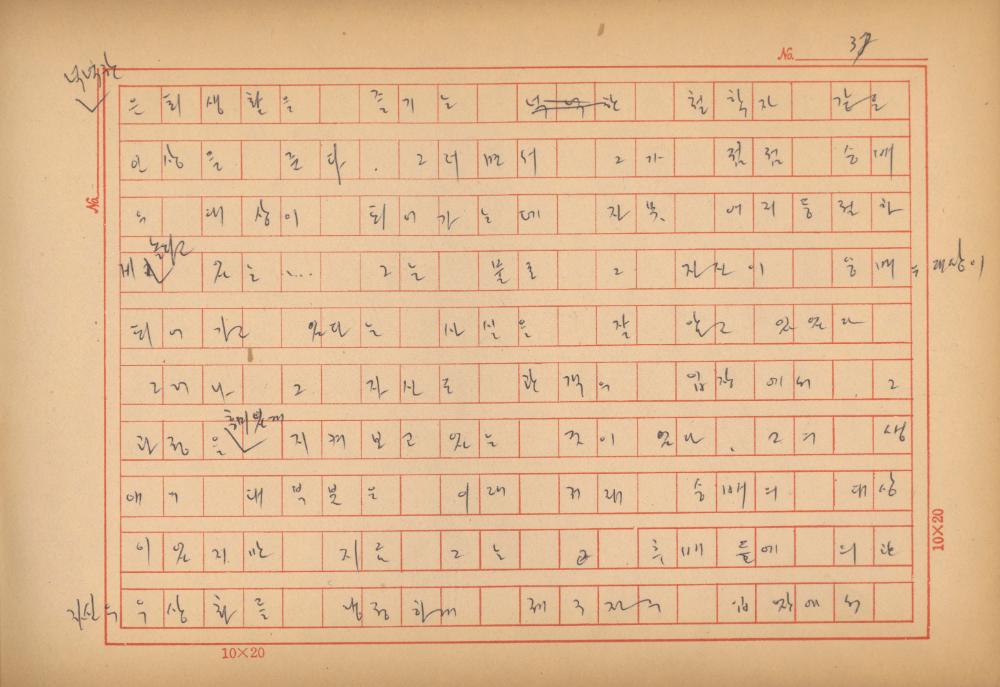 No. 37
넉넉한
은퇴생활을 즐기는 넉넉한 철학자 같은
인상을 준다. 그러면서 그가 점점 숭배
의 대상이 되어가는데 자못 어리둥절한
No.
놀라고
있는 .... 그는 물론 그 자신이 숭배의 대상이
되어 가고 있다는 사실을 잘 알고 있었다
그러나 그 자신도 관객의 입장에서 그
흥미있게
과정을 지켜보고 있는 것이 었다. 그의 생
애의 대부분은 이래 저래 숭배의 대상
이었지만 지금 그는 후배들에 의한
자신의 우상화를 냉정하게 제3자의 입장에서
10×20
10×20